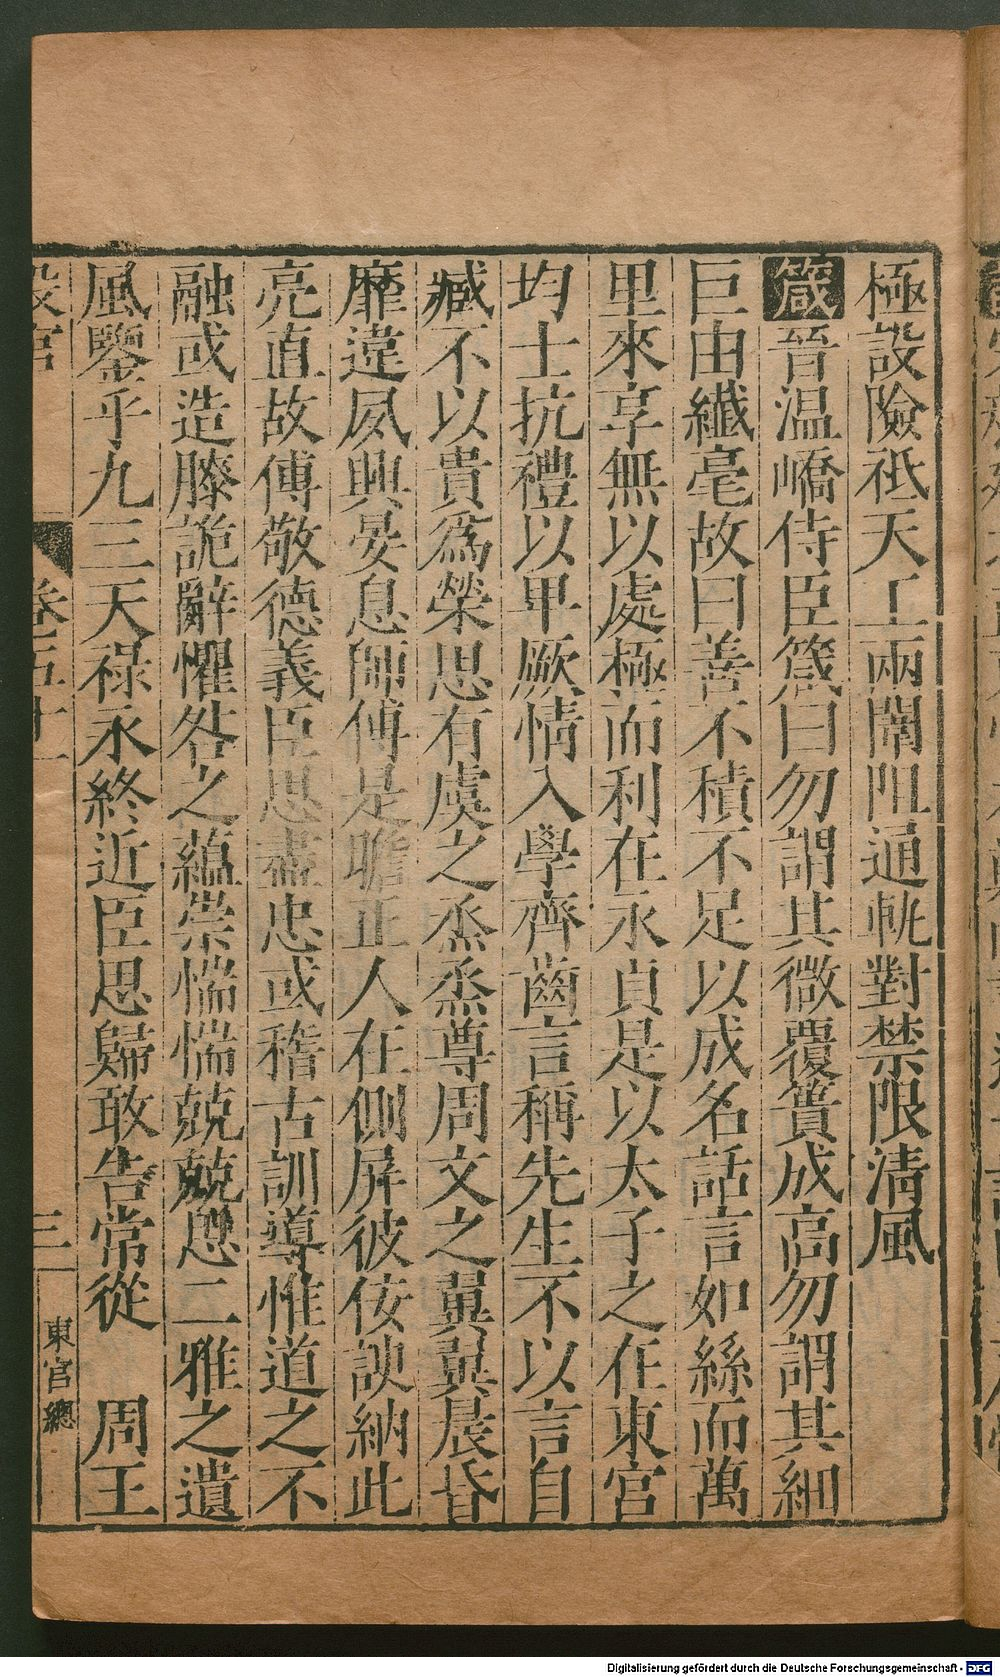 極設險祗天工兩闈阻通軏對禁限淸風
箴晉温嶠侍臣箴曰勿謂其微覆簣成高勿謂其細
巨由纎毫故曰善不積不足以成名話言如絲而萬
里來享無以處極而利在永貞是以太子之在東宮
均士抗禮以卑厥情入學齊齒言稱先生不以言自
臧不以貴爲榮思有虞之烝烝尊周文之翼翼晨昏
靡違夙興晏息師傅是瞻正人在側屏彼佞諛納此
亮直故傅敬德義臣思盡忠或稽古訓導惟道之不
融或造膝詭辭懼咎之蘊崇惴惴兢兢思二雅之遺
風鑒乎九三天祿永終近臣思歸敢告常從　周王
設官　卷五十一　三　東宮總
Digitalisierung gefördert durch die Deutsche Forschungsgemeinschaft - DFG